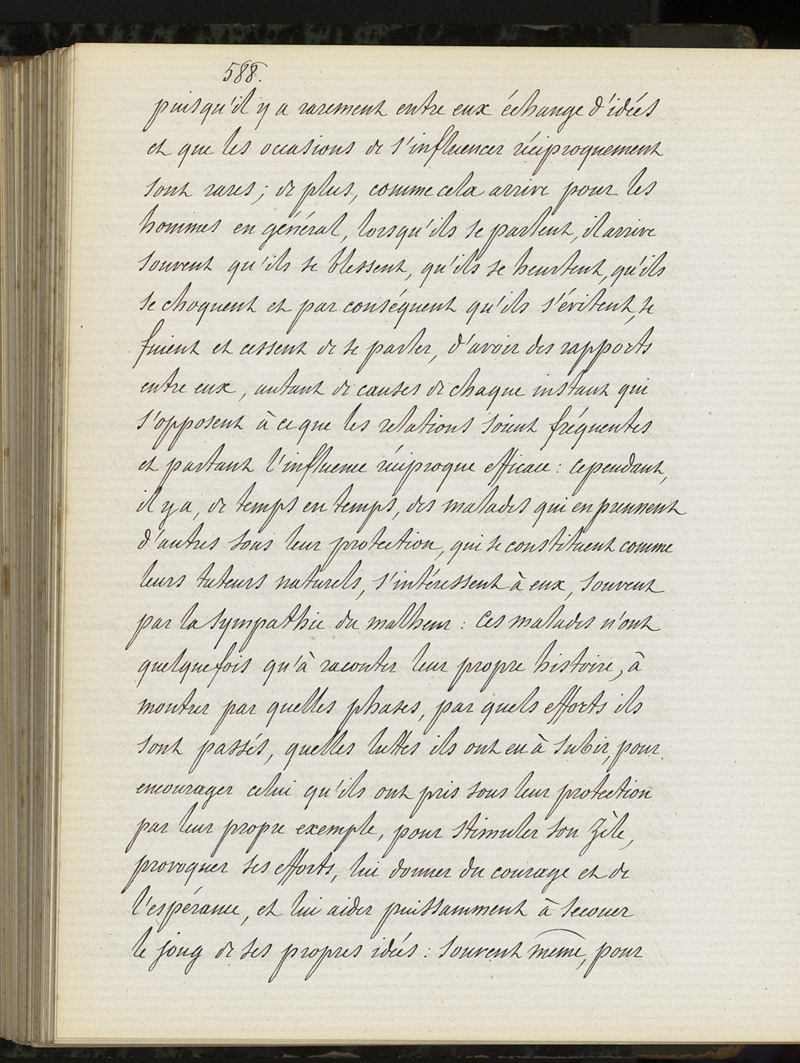 588.
puisqu'il y a rarement entre eux échange d'idées
et que les occasions de s'influencer réciproquement
sont rares; de plus, comme cela arrive pour les
hommes en général, lorsqu'ils se parlent, il arrive
souvent qu'ils se blessent, qu'ils se heurtent, qu'ils
se choquent et par conséquent qu'ils s'évitent, se
fuient et cessent de se parler, d'avoir des rapports
entre eux, autant de causes de chaque instant qui
s'opposent à ce que les relations soient fréquentes
et partant l'influence réciproque efficace: cependant,
il y a, de temps en temps, des malades qui en prennent
d'autres sous leur protection, qui se constituent comme
leurs tuteurs naturels, s'intéressent à eux, souvent
par la sympathie du malheur: ces malades n'ont
quelquefois qu'à raconter leur propre histoire, à
montrer par quelles phases, par quels efforts ils
sont passés, quelles luttes ils ont eu à subir, pour
encourager celui qu'ils ont pris sous leur protection
par leur propre exemple, pour stimuler son zèle,
provoquer ses efforts, lui donner du courage et de
l'espérance, et lui aider puissamment à secouer
le joug de ses propres idées: souvent même, pour